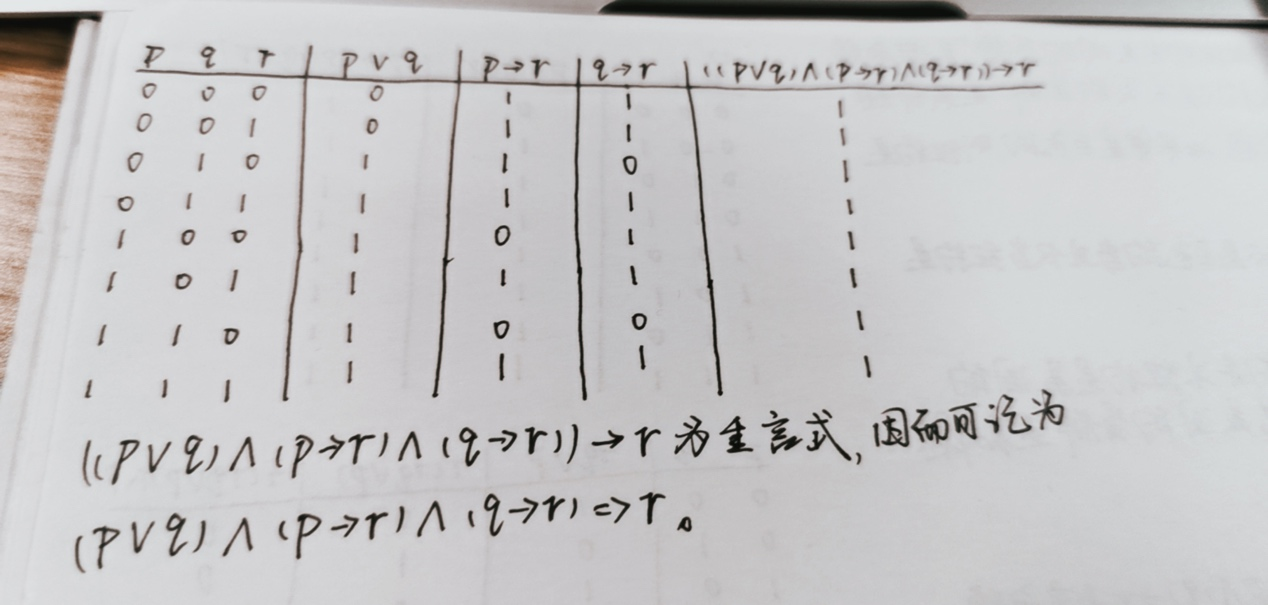 p q r p∨q p→r q→r ((p∨q)∧(p→r)∧(q→r))→r
0 0 0 0 1 1 1
0 0 1 0 1 1 1
0 1 0 1 1 0 1
0 1 1 1 1 1 1
1 0 0 1 0 1 1
1 0 1 1 1 1 1
1 1 0 1 0 0 1
1 1 1 1 1 1 1
((p∨q)∧(p→r)∧(q→r))→r为重言式,因而可记为
(p∨q)∧(p→r)∧(q→r)=>r。